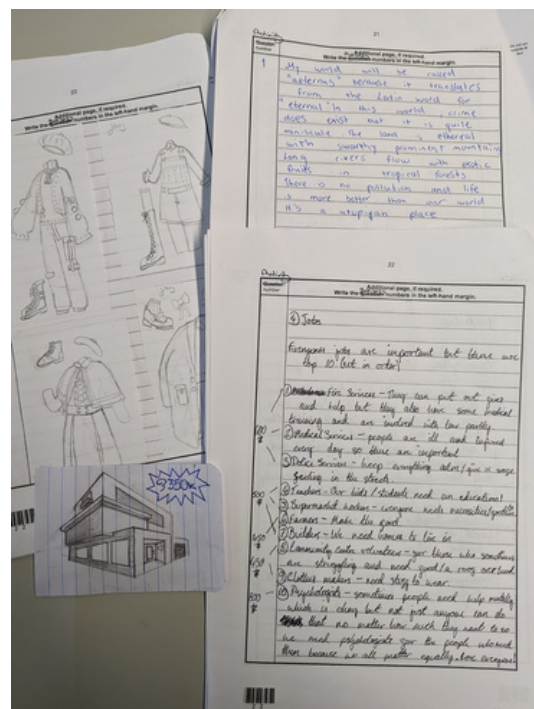 22
Additional page, if required.
Write the question numbers in the left-hand margin.
Activity
21
Additional page, if required.
Write the question numbers in the left-hand margin.
Question
number
1
My world will be called
"aeternus" because it translates
from the Latin world for
"eternal" In this world, crime
does exist but it is quite
miniscule. The land is ethereal
with swarthy prominent mountain
Long rivers flow with exotic
fruits in tropical forests
There is no pollution and life
is more better than our world
It's a utupigan place
Activity
22
Additional page, if required.
Write the question numbers in the left-hand margin.
Question
number
④ Jobs
Everyones jobs are important but these are
top 10 (not in order)
① Fire Services - They can put out fires
and help but they also have some medical
training and are involved with law partly
② Medical Services - people are ill and injured
every day so these are important
③ Police Services - keep everything calm/
in the streets
④ Teachers - Our kids/students need an education!
⑤ Supermarket workers - everyone needs necessities/
⑥ Farmers - Make the food
⑦ Builders - We need homes to live in
⑧ Community centre volunteers - for those who sometimes
are struggling and need food/a roof over head
⑨ Clothes makers - need stuff to wear
⑩ Psychologists - sometimes people need help mentally
which is okay but not just anyone can do
that no matter how much they want to so
we need psychologists for the people who need
them because we all matter equally. love everyone
9350